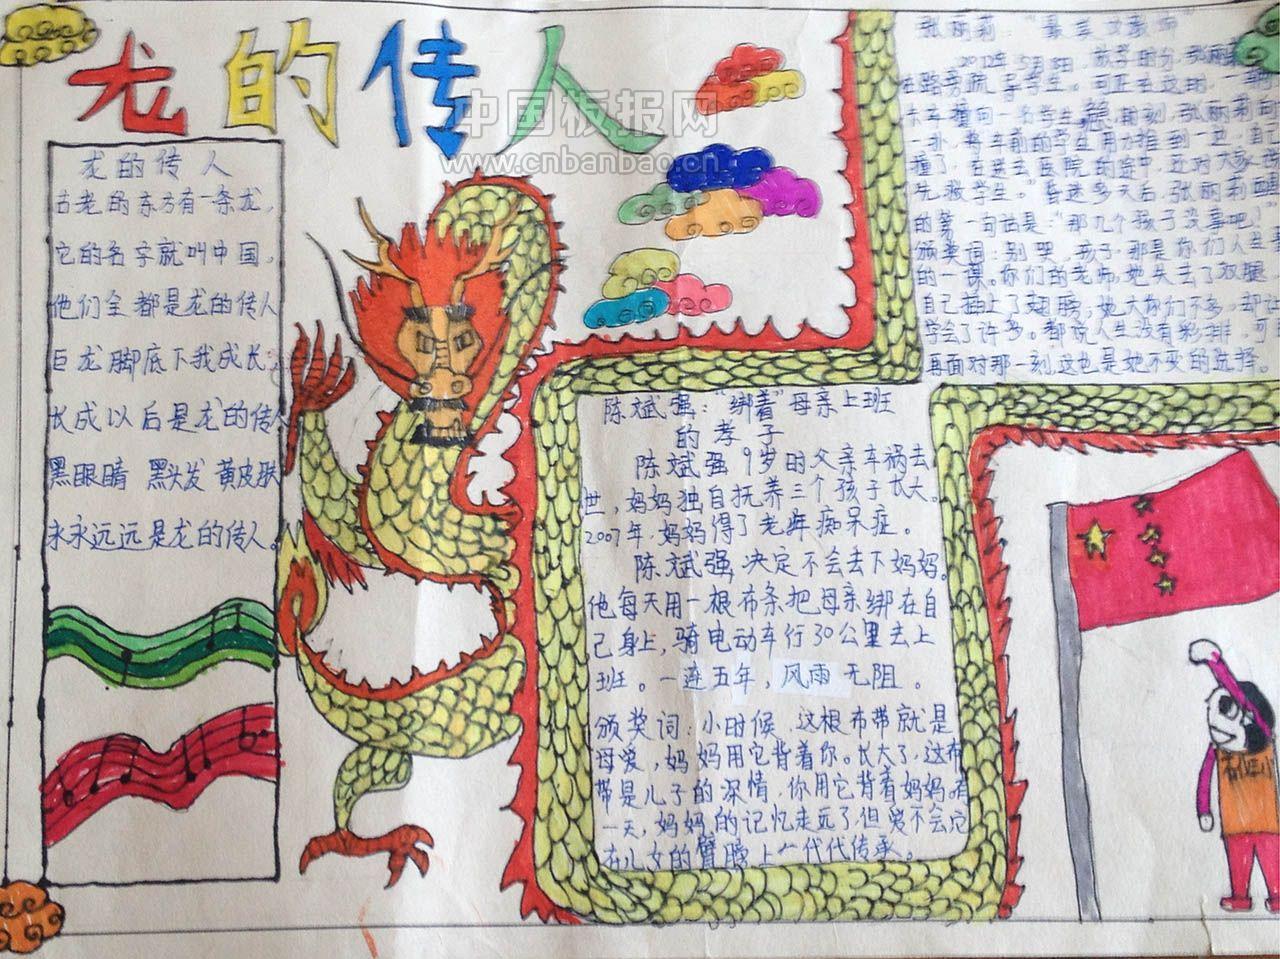 龙的传人
中国板报网
www.cnbanbao.cn
龙的传人
古老的东方有一条龙，
它的名字就叫中国。
他们全都是龙的传人
巨龙脚底下我成长，
长成以后是龙的传人
黑眼睛 黑头发 黄皮肤
永永远远是龙的传人。
陈斌强："绑着"母亲上班
的孝子
陈斌强9岁时父亲车祸去
世，妈妈独自抚养三个孩子长大。
2007年，妈妈得了老年痴呆症。
陈斌强决定不会去下妈妈。
他每天用一根布条把母亲绑在自
己身上，骑电动车行30公里去上
班。一连五年，风雨无阻。
颁奖词：小时候，这根布带就是
母爱，妈妈用它背着你。长大了，这布
带是儿子的深情，你用它背着妈妈。有
一天，妈妈的记忆走远了，但爱不会，它
在儿女的臂膀上一代代传承。
张丽莉："最美女教师"
2012年5月8日，放学时分，张丽莉
在路旁疏导学生。可正在这时，一辆
车撞向一名学生，张丽莉向
一扑，将车前的学生用力推到一边，自己
撞了，在送去医院的途中，还对大家说
先救学生。"昏迷多天后，张丽莉
的第一句话是："那几个孩子没事吧！"
颁奖词：别哭，孩子，那是你们人生
的一课。你们的老师，她失去了双腿
自己插上了翅膀，她大你们不多，却让
学会了许多。都说人生没有彩排，可
再面对那一刻，这也是她不变的选择。